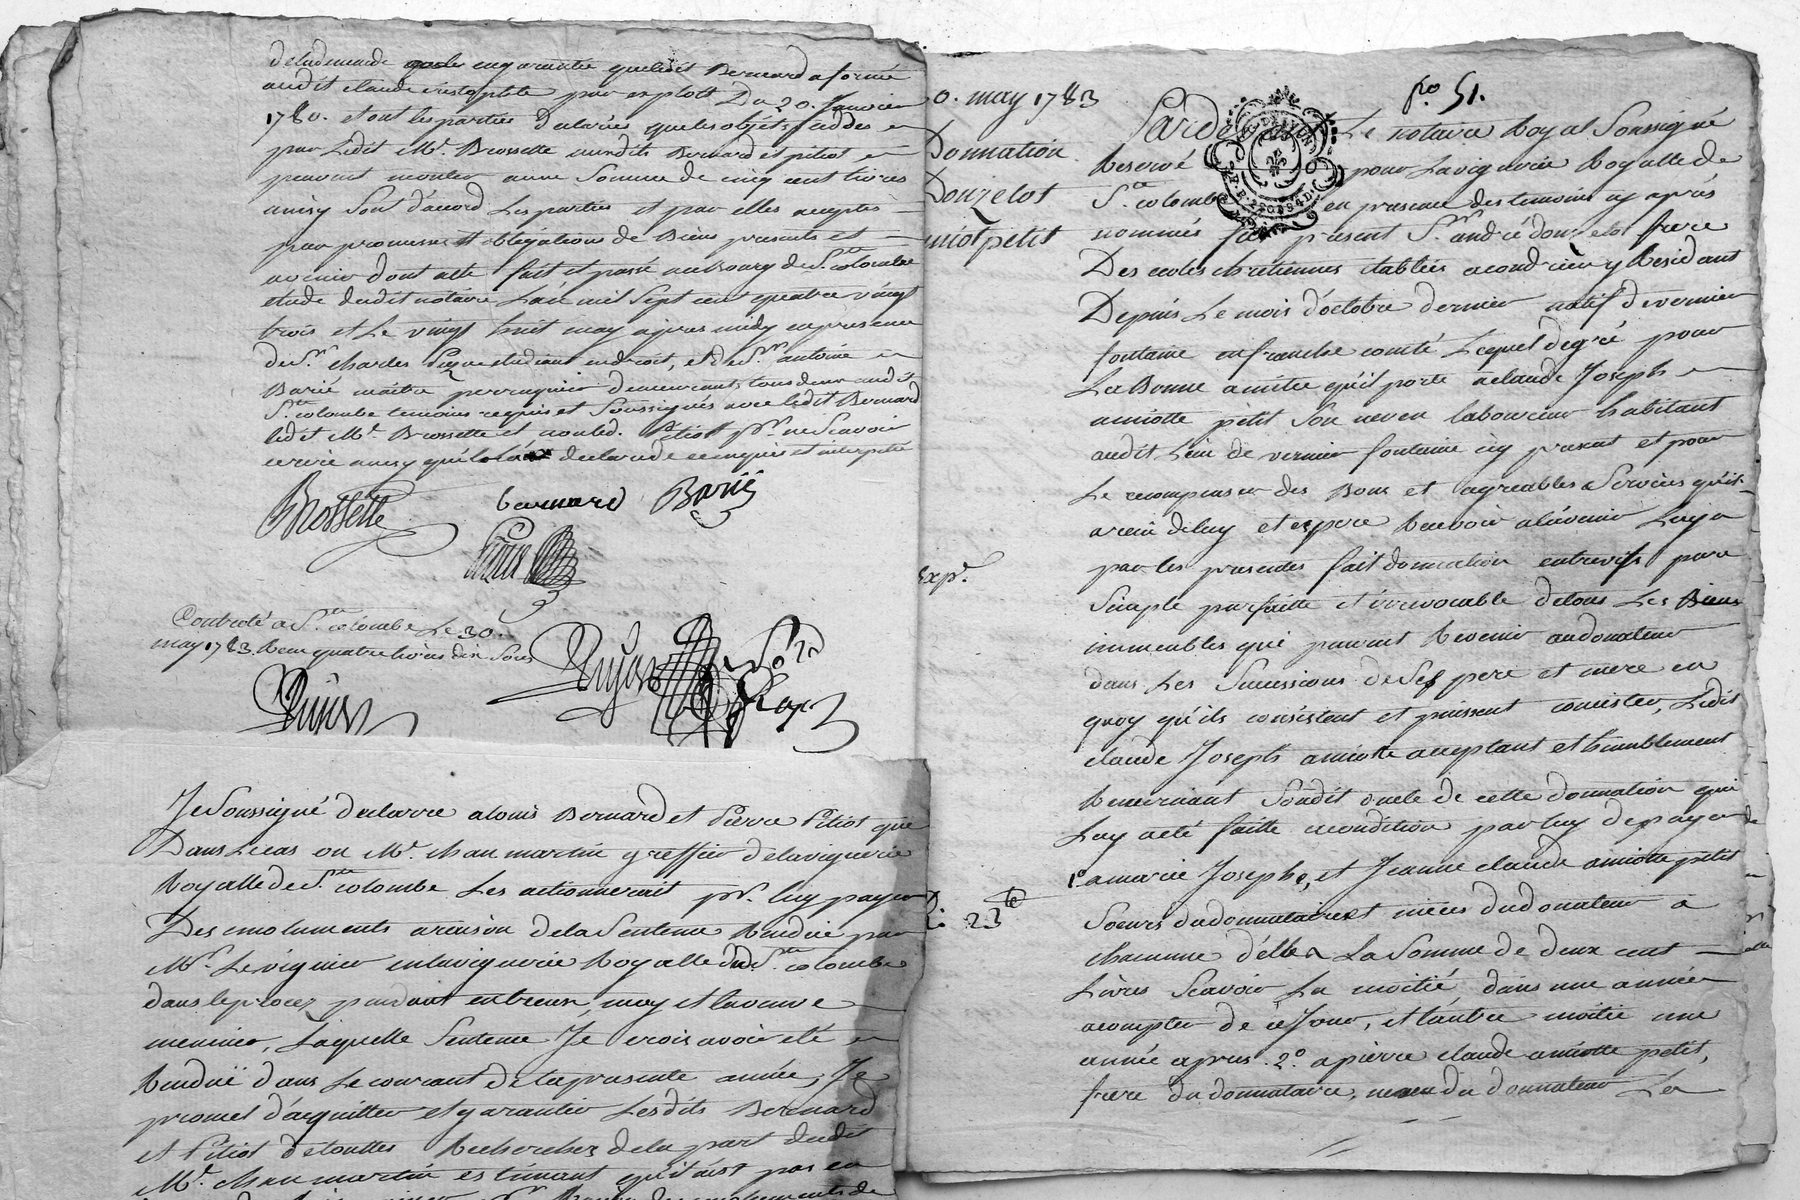 de la demande en garantie que ledit Bernard a formé
audit claude cristophle par exploit Du 20. Janvier
1780. et ont les parties declarées que les objets ceddés
par Ledit Mr. Brossette auxdits Bernard et pitiot
peuvent monter a une Somme de cinq cent livres
ainsy Sont d'accord Les parties et par elles accepté
par promesses et obligations de Biens presents et
avenir dont acte fait et passé au bourg de Ste. colombe
étude dudit notaire L'an mil Sept cent quatre vingt
trois et Le vingt huit may apres midy en presence
de Sr. charles etudiant en droit, et de Sr. antoine
Barié maitre perruquier demeurants tous deux audit
Ste. colombe temoins requis et Soussignés avec ledit Bernard
ledit Mr. Brossette et non led. Pitiot pr. ne Scavoir
ecrire ainsy qu'il a declaré de ce enquis et interpellé
Brossette
bernard
Barié
Controlé a Ste. colombe Le 30.
may 1783. Reçu quatre livres dix Sols
Je Soussigné declarre a louis Bernard et Pierre Pitiot que
Dans Le cas ou Mr. chanmartin greffier de la viguerie
Royalle de Ste. colombe Les actionnerait pr. luy payer
Des emoluments a raison de la Sentence Rendue par
Mr. Le viguier en la viguerie Royalle dud. Ste. colombe
dans le procez pendant entreux, moy et la veuve
meunier, Laquelle Sentence Je crois avoir eté
Renduë dans Le courant de la presente année, Je
promet d'acquitter et garantir Lesdits Bernard
et Pitiot de touttes Recherches de la part dudit
Mr. chanmartin estimant qu'il n'est pas en
0. may 1783
Donnation
Donzelot
miot petit
Exp.
Le 23
fo. 51.
Pardevant Le notaire Royal Soussigné
Reservé pour La viguerie Royalle de
Ste. colombe en presence des temoins cy après
nommés fut présent Sr. andré donzelot frere
Des ecoles chretiennes établies a condrieu y Residant
Depuis Le mois d'octobre dernier natif de vernier
fontaine en franche comté Lequel de gré pour
La Bonne amitié qu'il porte a claude Joseph
amiotte petit Son neveu laboureur habitant
audit Lieu de vernier fontaine icy present et pour
Le recompenser des Bons et agreables Services qu'il
a recu de luy et espere Recevoir a l'avenir Luy a
par les presentes fait donnation entrevifs pure
Simple parfaitte et irrevocable de tous Les Biens
immeubles qui peuvent Revenir au donateur
dans Les Successions de Ses pere et mere en
quoy qu'ils consistent et puissent consister, Ledit
claude Joseph amiotte acceptant et humblement
Remerciant Sondit oncle de cette donnation qui
Luy a eté faitte a condition par luy de payer
1.° a marie Josephe, et Jeanne claude amiotte petit
Soeurs du donnataire et nieces du donateur a
chacune d'elles La Somme de deux cent
Livres Scavoir La moitié dans une année
a compter de ce Jour, et l'autre moitié une
année apres. 2.° a pierre claude amiotte petit,
frere du donnataire, neveu du donnateur La